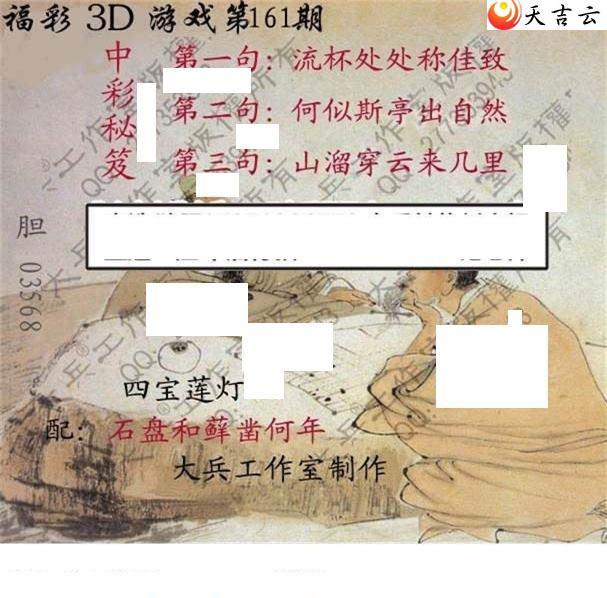 福彩 3D 游戏第161期
天吉云
中彩秘笈
第一句：流杯处处称佳致
第二句：何似斯亭出自然
第三句：山溜穿云来几里
胆 03568
四宝莲灯
配：石盘和藓凿何年
大兵工作室制作